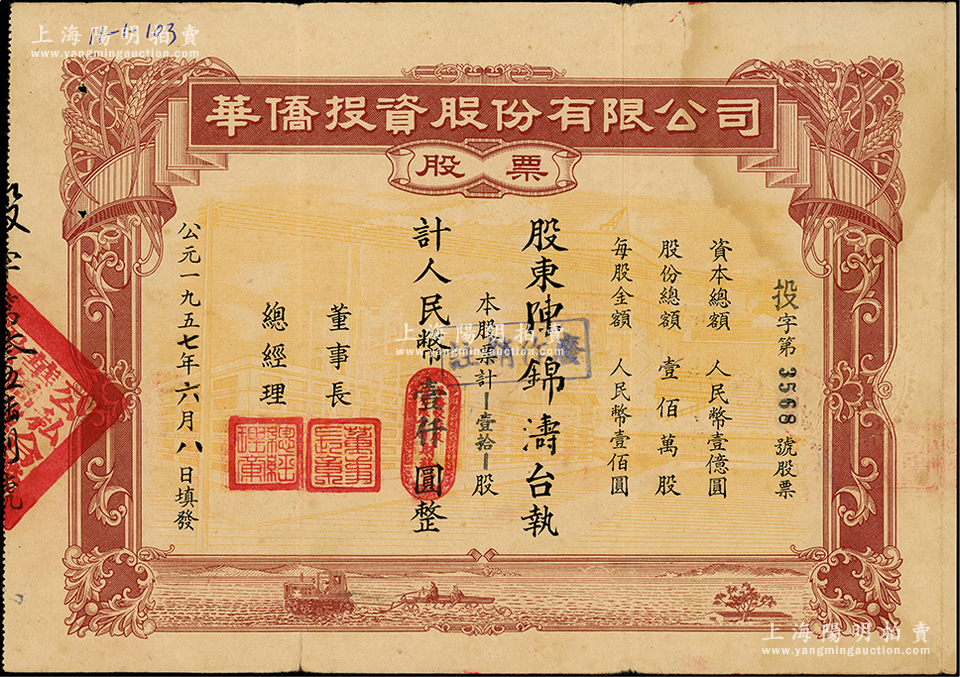 上海陽明拍賣
www.yangmingauction.com
12-11 103
華僑投資股份有限公司
股票
投字第 3568 號股票
資本總額 人民幣壹億圓
股份總額 壹佰萬股
每股金額 人民幣壹佰圓
股東陳錦濤台執
本股票計壹拾股
計人民幣壹仟圓整
董事長
總經理
公元一九五七年六月八日填發
上海陽明拍賣
www.yangmingauction.com
上海陽明拍賣
www.yangmingauction.com